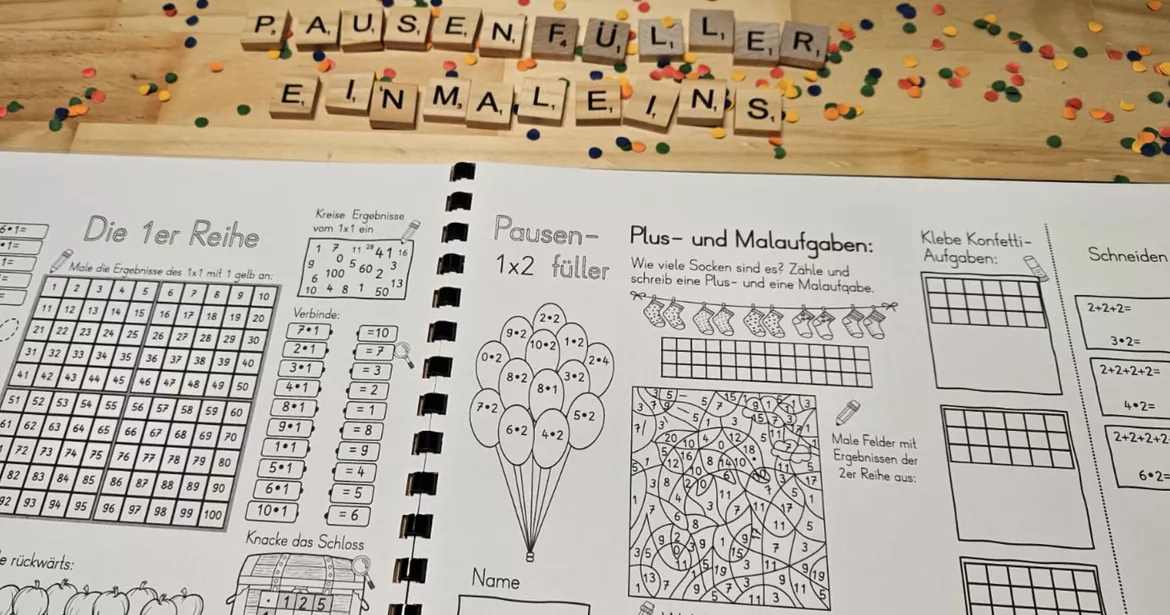 PAUSENFÜLLER
EINMALEINS
6•1=
•1=
1=
=
Die 1er Reihe
Male die Ergebnisse des 1x1 mit 1 gelb an:
1 2 3 4 5 6 7 8 9 10
11 12 13 14 15 16 17 18 19 20
21 22 23 24 25 26 27 28 29 30
31 32 33 34 35 36 37 38 39 40
41 42 43 44 45 46 47 48 49 50
51 52 53 54 55 56 57 58 59 60
61 62 63 64 65 66 67 68 69 70
72 73 74 75 76 77 78 79 80
82 83 84 85 86 87 88 89 90
92 93 94 95 96 97 98 99 100
e rückwärts:
Kreise Ergebnisse
vom 1x1 ein
1 7 11 28 41 16
9 0 5 60 2 3
6 100 13
10 4 8 1 50
Verbinde:
7•1 =10
2•1 =7
3•1 =3
4•1 =2
8•1 =1
9•1 =8
1•1 =9
5•1 =4
6•1 =5
10•1 =6
Knacke das Schloss
1 2 5
Pausen-
1x2 füller
2•2
9•2 10•2 1•2
0•2 2•4
8•2 8•1 3•2
7•2 5•2
6•2 4•2
Name
Plus- und Malaufgaben:
Wie viele Socken sind es? Zähle und
schreib eine Plus- und eine Malaufgabe.
Male Felder mit
Ergebnissen der
2er Reihe aus:
Klebe Konfetti-
Aufgaben:
Schneiden
2+2+2=
3•2=
2+2+2+2=
4•2=
2+2+2+2
6•2=